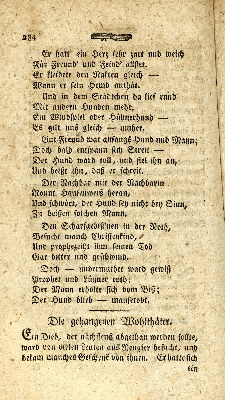 284
Er hatt' ein Herz sehr zart und weich
Für Freund' und Feind' allhier.
Er kleidete den Nakten gleich —
Wann er sein Hemd anthat.
Und in dem Städtchen da lief rund
Mit andern Hunden mehr,
Ein Windspiel oder Hühnerhund —
Es gilt uns gleich — umher.
Gut Freund war anfangs Hund und Mann;
Doch bald entspann sich Streit —
Der Hund ward toll, und fiel ihn an,
Und beißt ihn, daß er schreit.
Der Nachbar mit der Nachbarin
Und schwört, der Hund sey nicht bey Sinn,
Zu beissen solchen Mann.
in Noth,
Besucht manch Christenkind,
Und prophezeiht ihm seinen Tod
Gar bitter und geschwind.
Doch — unvermuthet ward gewiß
Prophet und Lügner roth;
Der Mann erholte sich vom Biß;
Der Hund blieb — mausetodt.
Die gehangenen Wohlthäter.
Ein Dieb, der nächstens abgethan werden sollte,
ward von vielen Leuten aus Neugier besucht, und
bekam manches Geschenk von ihnen. Er hatte sich